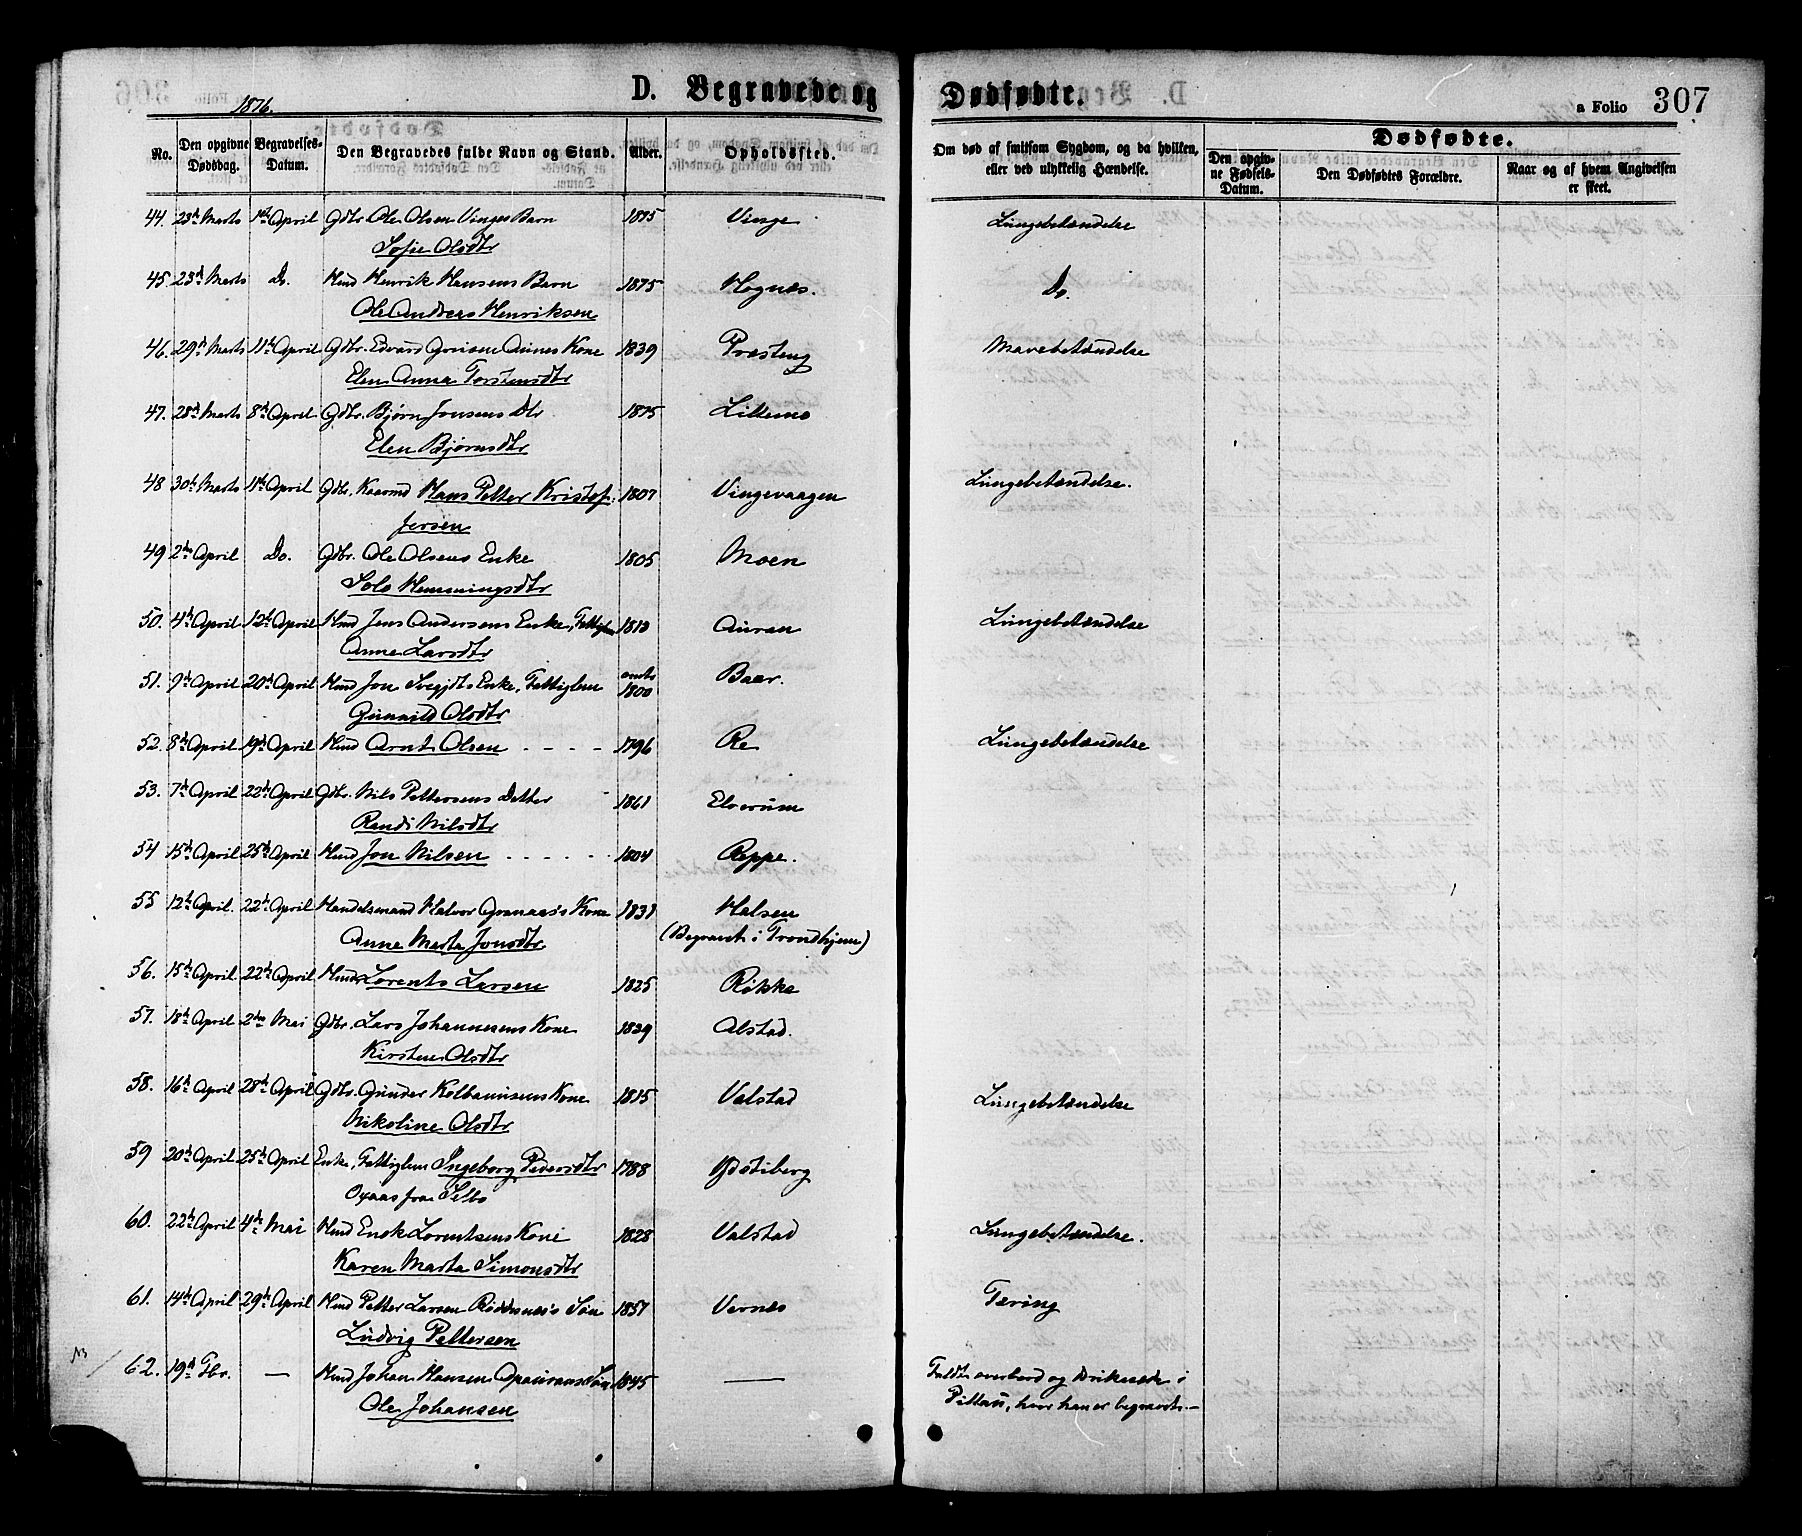 1876.
D. Begravede og Dødfødte.
a Folio 307
No. Den opgivne Dødsdag. Begravelses-Datum. Den Begravedes fulde Navn og Stand. Alder. Opholdssted. Om død af smitsom Sygdom, og da hvilken, eller ved ulykkelig Hændelse. Dødfødte. Den opgivne Fødsels-Datum. Den Dødfødtes Forældre. Naar og af hvem Angivelsen er skeet.
44. 23d Marts 1st April Gdbr Ole Olsen Vinges Barn 1875 Vinge Lungebetændelse
Sofie Olsdtr
45 23d Marts Do. Hmd Henrik Hansens Barn 1875 Hognes. Do.
Ole Anders Henriksen
46. 29d Marts 11th April Gdbr. Edvard Kone 1839 Præsteng Mavebetændelse
Elen Anna Torstensdtr
47. 28d Marts 8d April Gdbr. Bjørn Jonsens Dtr 1875 Lillemo
Elen Bjørnsdtr
48 30d Marts 11th April Gdbr. Kaarmd Hans Petter Kristof- 1807 Vingevaagen Lungebetændelse.
fersen
49 2den April Do. Gdbr. Ole Olsens Enke 1805 Moen
Solo Hemmingsdtr
50. 4d April 12d April Hmd Jens Andersens Enke, Fattiglem 1813 Auran Lungebetændelse
Anne Larsdtr
51. 9d April 20d April Hmd Jon Enke, Fattiglem omtr 1800 Baar.
Gunnild Olsdtr
52. 8d April 19d April Hmd Arnt Olsen - - - - 1796 Re Lungebetændelse
53. 7d April 22d April Gdbr. Nils Pettersens Datter 1861 Elverum
Randi Nilsdtr
54 15d April 25d April Hmd Jon Nilsen - - - - - - 1804 Reppe.
55 12d April. 22d April Handelsmand Halvor Granaas's Kone 1831 Halsen
Anne Marta Jonsdtr (Begravet i Trondhjem)
56. 15d April 22d April Hmd Lorents Larsen 1825 Røkke
57. 18d April 2den Mai Gdbr. Lars Johannesens Kone 1829 Alstad.
Kirsten Olsdtr
58. 16d April 28d April Gdbr. Gunder Kolbanusens Kone 1815 Valstad Lungebetændelse
Nikoline Olsdtr
59 20d April 25d April Enke, Fattiglem Ingeborg Pedersdtr 1788 Ydstiberg
fra Selbo
60. 22d April 4d Mai Hmd Enok Lorentsens Kone 1828 Valstad Lungebetændelse.
Karen Marta Simonsdtr
61. 14d April 29d April Hmd Petter Larsen Søn 1857 Vernes Tæring
Ludvig Pettersen
62. 19d Fbr. — Hmd Johan Hansen Søn 1845 — Faldt overbord og druknede i
Ole Johansen Pillau, hvor han er begravet. —